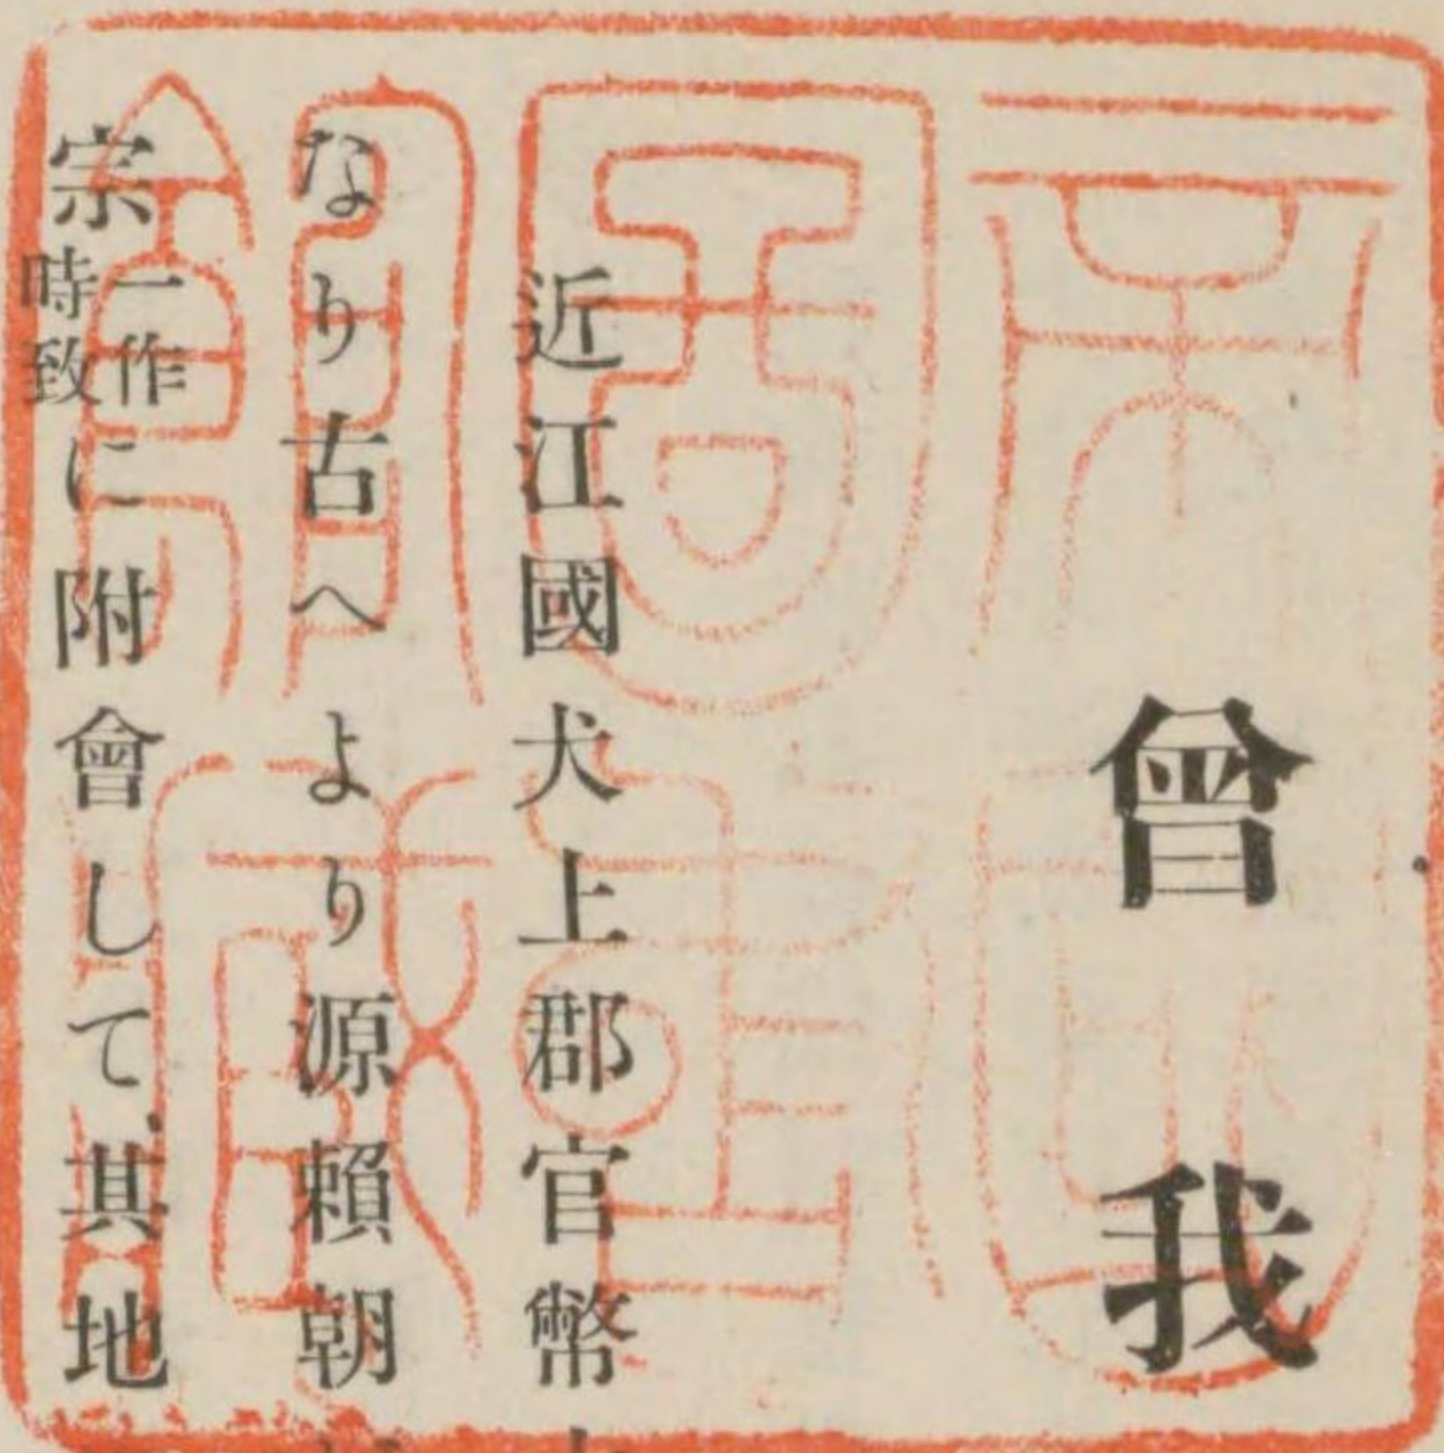 曾我
近江國犬上郡官幣
なり古へより源賴朝
宗一作時致に附會して、其地
帝國圖書館藏